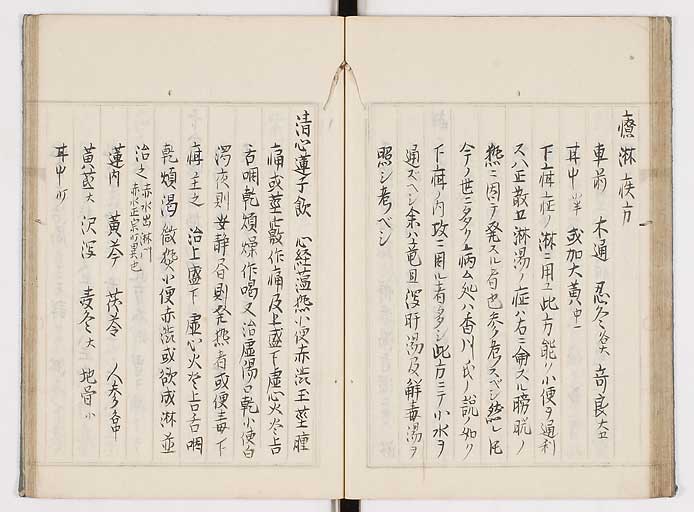 療淋疾方
車前 木通 忍冬各大 奇良大
耳中 或加大黄中
下疳症ノ淋ニ用ユ此方能ク小便ヲ通利
ス八正散 淋湯ノ症ハ石 ノ
熱ニ因テ発スル者也参考スベシ然レ𪜈
今ノ世ニ多ク 病ム処ハ香川氏ノ説ノ如ク
下疳ノ内攻ニ因ル者多シ此方ニテ小水ヲ
通ズベシ余ハ竜胆瀉肝湯及解毒湯ヲ
照シ考ベシ
清心蓮子飲 心経蘊熱小便赤渋玉莖腫
痛或莖 作痛及上盛下虚心火炎上
舌咽乾煩燥作渇又治虚陽口乾小便白
濁夜則安静昼則発熱者或便毒下
疳主之 治上盛下虚心火炎上舌咽
乾煩渇微熱小便赤渋或欲成淋並
治之
蓮肉 黄芩 茯苓 人参各中
黄芪大 沢瀉 麦冬大 地骨小
耳中